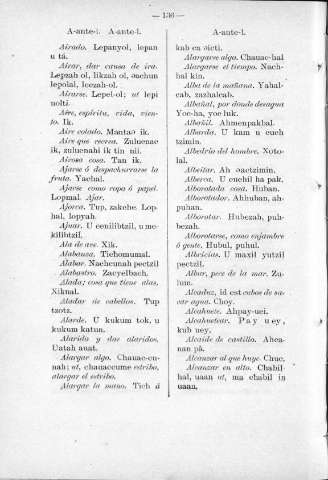 — 136 —
A-ante-i. A-ante-l.
Airado. Lepanyol, lepan
u tá.
Airar, dar causa de ira.
Lepzah ol, likzah ol, oachun
lepolal, leczah-ol.
Airarse. Lepel-ol; ut lepi
uolti.
Aire, espíritu, vida, vien-
to. Ik.
Aire colado. Mantao ik.
Aire que recrea. Zulucnac
ik, zulucnahi ik tin nii.
Airosa cosa. Tan ik.
Ajarse ó despachurrarse la
fruta. Yachal.
Ajarse como ropa ó papel.
Lopmal. Ajar.
Ajorca. Tup, zakche. Lop-
hal, lopyah.
Ajuar. U cenilibtzil, u me-
kilibtzil.
Ala de ave. Xik.
Alabanza. Tichomunal.
Alabar. Nachcunah pectzil
Alabastro. Zacyelbach.
Alada; cosa que tiene alas.
Xiknal.
Aladar de cabellos. Tup
tzotz.
Alarde. U kukum tok, u
kukum katun.
Alarido y dar alaridos.
Uatah auat.
Alargar algo. Chauac-cu-
nah; ut, chauaccume estribo,
alargar el estribo.
Alargar la mano. Tich á
A-ante-l.
kab ca oicti.
Alargarse algo. Chauac-hal
Alargarse el tiempo. Nach-
hal kin.
Alba de la mañana. Yahal-
cab, zazhalcab.
Albañal, por donde desagua
Yoc-ha, yoc luk.
Albañil. Ahmenpakbal.
Albarda. U kam u cuch
tzimin.
Albedrío del hombre. Xoto-
lal.
Albeitar. Ah oactzimin.
Alberca. U cuchil ha pak.
Alborotada cosa. Huban.
Alborotador. Ahhuban, ah-
puhan.
Alborotar. Hubezah, puh-
bezah.
Alborotarse, como enjambre
ó gente. Hubul, puhul.
Albricias. U maxil yutzil
pectzil.
Albur, pece de la mar. Za-
luuc.
Alcaduz, id est cubos de sa-
car agua. Choy.
Alcahuete. Ahpay-uci.
Alcahuetear. Pay uey,
kub uey.
Alcaide de castillo. Ahca-
nan pá.
Alcanzar al que huye. Chuc.
Alcanzar en alto. Chabil-
hal, uaan ut, ma chabil in
uaan.